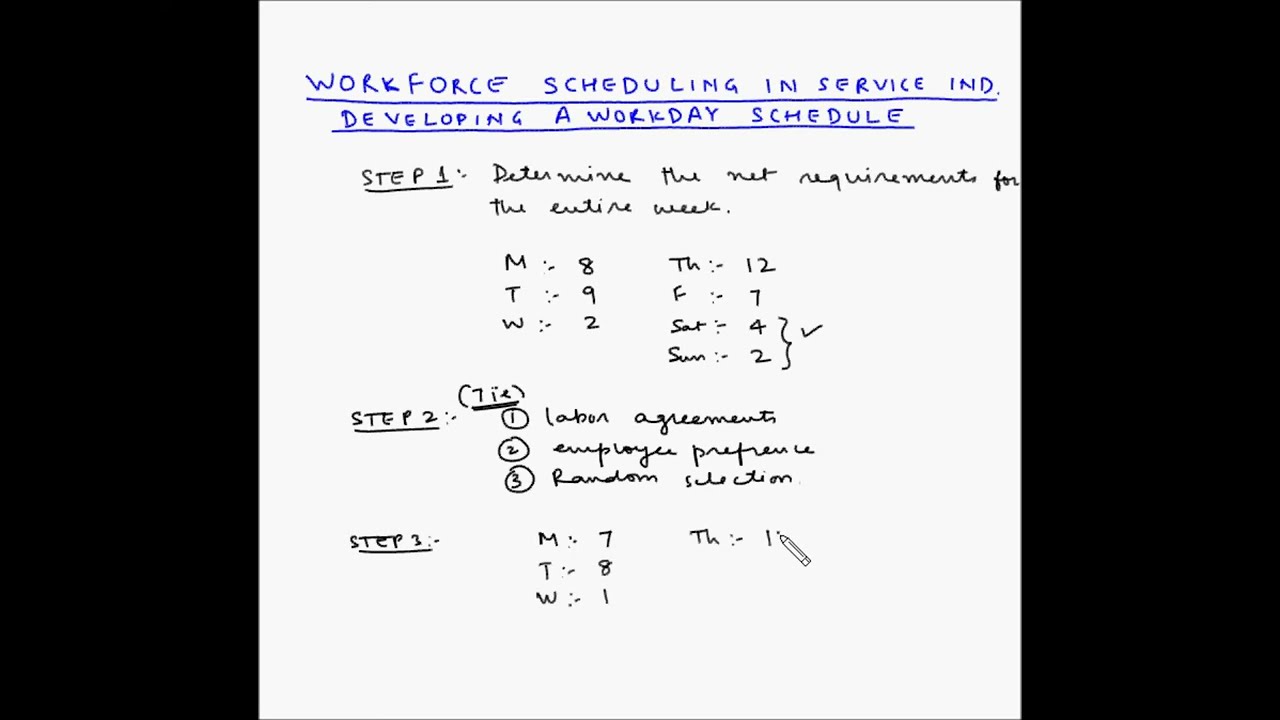 WORKFORCE SCHEDULING IN SERVICE IND.
DEVELOPING A WORKDAY SCHEDULE
STEP 1:- Determine the net requirements for
the entire week.
M :- 8 Th :- 12
T :- 9 F :- 7
W :- 2 Sat :- 4
Sun :- 2
(Tie)
STEP 2:- 1 labor agreements
2 employee prefrence
3 Random selection.
STEP 3:- M :- 7 Th :- 1
T :- 8
W :- 1